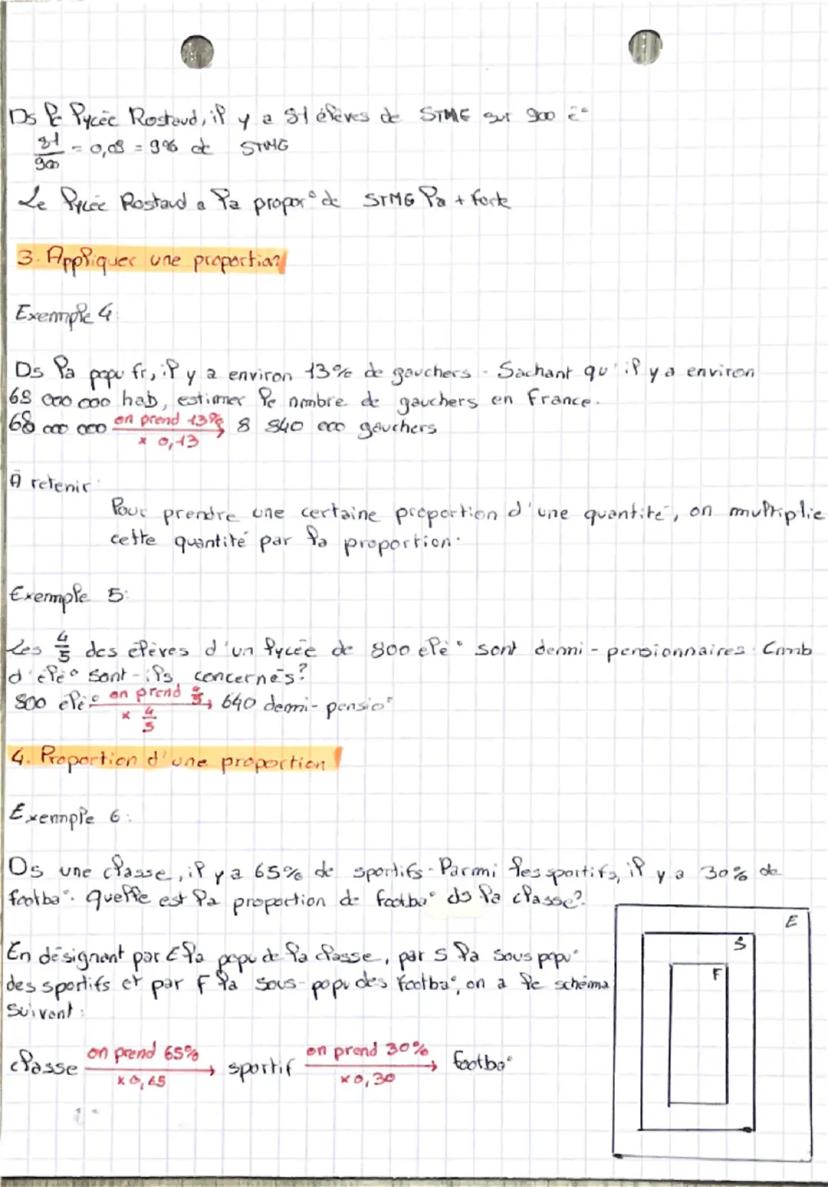 Ds le lycée Rostand, il y a 81 élèves de STMG sur 900 é°
81/900 = 0,09 = 9% de STMG
Le lycée Rostand a la propor° de STMG la + forte
3. Appliquer une proportion
Exemple 4:
Ds la popu fr, il y a environ 13% de gauchers. Sachant qu'il y a environ
68 000 000 hab, estimer le nombre de gauchers en France.
68 000 000 on prend 13% × 0,13 → 8 840 000 gauchers
À retenir:
Pour prendre une certaine proportion d'une quantité, on multiplie
cette quantité par la proportion.
Exemple 5:
Les 4/5 des élèves d'un lycée de 800 elé° sont demi-pensionnaires. Comb
d'elé° sont-ils concernés?
800 elé° on prend 4/5 × 4/5 → 640 demi-pensio°
4. Proportion d'une proportion
Exemple 6:
Ds une classe, il y a 65% de sportifs. Parmi les sportifs, il y a 30% de
footba°. quelle est la proportion de footba° ds la classe?
En désignant par E la popu de la classe, par S la sous popu°
des sportifs et par F la sous-popu des footba°, on a le schéma
suivant:
classe on prend 65% × 0,65 → sportif on prend 30% × 0,30 → footba°
E
S
F